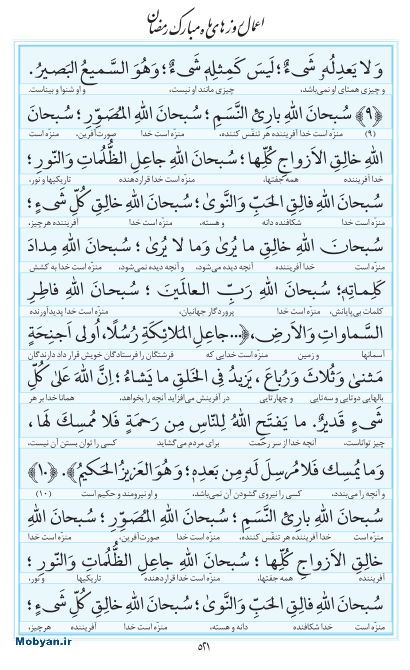 اعمال روزهای ماه مبارک رمضان
وَلا یَعدِلُهُ شَیءٌ؛ لَیسَ کَمِثلِهِ شَیءٌ؛ وَهُوَ السَّمیعُ البَصیرُ.
و چیزی همتای او نمی‌باشد، چیزی مانند او نیست، و او شنوا و بیناست.
﴿۹﴾ سُبحانَ اللهِ بارِئِ النَّسَمِ؛ سُبحانَ اللهِ المُصَوِّرِ؛ سُبحانَ
(۹) منزّه است خدا آفریننده هر تنفّس کننده، منزّه است خدا صورت‌آفرین، منزّه است
اللهِ خالِقِ الاَزواجِ کُلِّها؛ سُبحانَ اللهِ جاعِلِ الظُّلُماتِ وَالنّورِ؛
خدا آفریننده همه جفتها، منزّه است خدا قراردهنده تاریکیها و نور،
سُبحانَ اللهِ فالِقِ الحَبِّ وَالنَّوىٰ؛ سُبحانَ اللهِ خالِقِ کُلِّ شَیءٍ؛
منزّه است خدا شکافنده دانه و هسته، منزّه است خدا آفریننده هرچیز،
سُبحانَ اللهِ خالِقِ ما یُرىٰ وَما لا یُرىٰ؛ سُبحانَ اللهِ مِدادَ
منزّه است خدا آفریننده آنچه دیده می‌شود، و آنچه دیده نمی‌شود، منزّه است خدا به کشش
کَلِماتِهِ؛ سُبحانَ اللهِ رَبِّ العالَمینَ؛ سُبحانَ اللهِ فاطِرِ
کلمات بی‌پایانش، منزّه است خدا پروردگار جهانیان، منزّه است خدا پدیدآورنده
السَّماواتِ وَالاَرضِ، ﴿...جاعِلِ المَلائِکَةِ رُسُلًا، اُولی اَجنِحَةٍ
آسمانها و زمین منزّه است خدایی که فرشتگان را فرستادگان خویش قرار داد دارندگان
مَثنىٰ وَثُلاثَ وَرُباعَ، یَزیدُ فِی الخَلقِ ما یَشاءُ؛ اِنَّ اللهَ عَلىٰ کُلِّ
بالهایی دوتایی و سه‌تایی و چهارتایی در آفرینش می‌افزاید آنچه را بخواهد، همانا خدا بر هر
شَیءٍ قَدیرٌ. ما یَفتَحِ اللهُ لِلنّاسِ مِن رَحمَةٍ فَلا مُمسِكَ لَها،
چیز تواناست، آنچه خدا از سر رحمت برای مردم می‌گشاید کسی را توان بستن آن نیست،
وَما یُمسِك فَلا مُرسِلَ لَهُ مِن بَعدِهِ؛ وَهُوَ العَزیزُ الحَکیمُ﴾. ﴿۱۰﴾
و آنچه را می‌بندد، کسی را نیروی گشودن آن نمی‌باشد، و او نیرومند و حکیم است (۱۰)
سُبحانَ اللهِ بارِئِ النَّسَمِ؛ سُبحانَ اللهِ المُصَوِّرِ؛ سُبحانَ اللهِ
منزّه است خدا آفریننده هر تنفّس کننده، منزّه است خدا صورت‌آفرین، منزّه است خدا
خالِقِ الاَزواجِ کُلِّها؛ سُبحانَ اللهِ جاعِلِ الظُّلُماتِ وَالنّورِ؛
آفریننده همه جفتها، منزّه است خدا قراردهنده تاریکیها و نور،
سُبحانَ اللهِ فالِقِ الحَبِّ وَالنَّوىٰ؛ سُبحانَ اللهِ خالِقِ کُلِّ شَیءٍ؛
منزّه است خدا شکافنده دانه و هسته، منزّه است خدا آفریننده هرچیز،
۵۲۱
Mobyan.ir